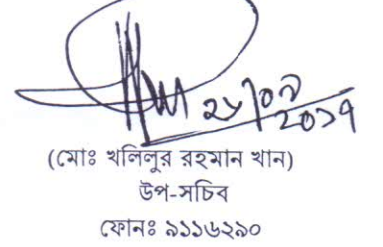 ২৮/০৯
২০১৭
(মোঃ খলিলুর রহমান খান)
উপ-সচিব
ফোনঃ ৯১১৬২৯০